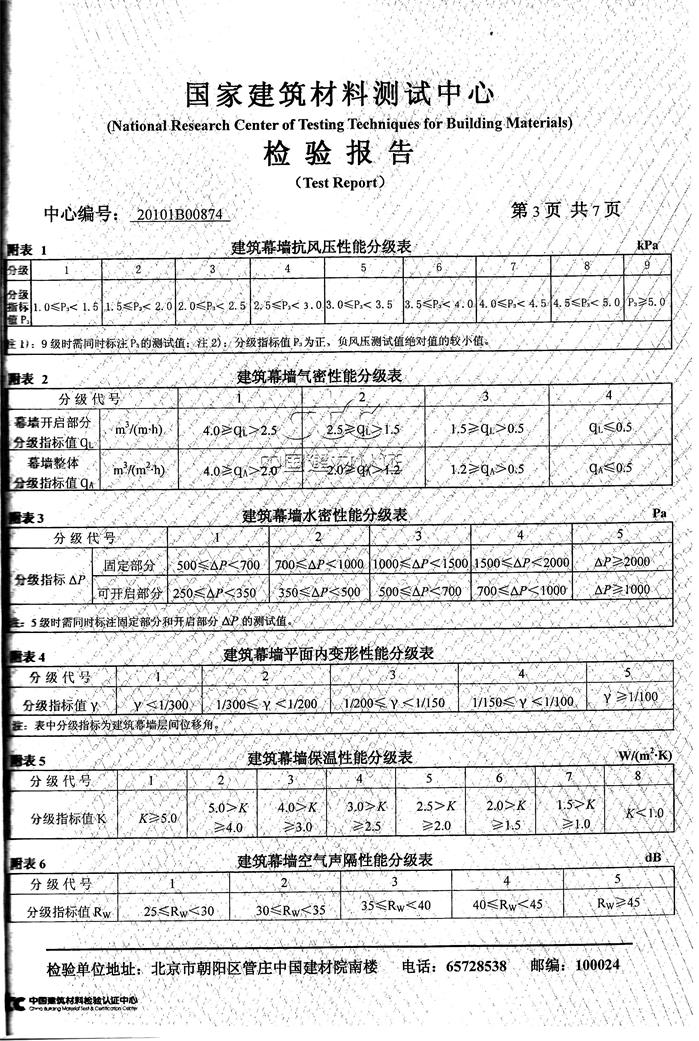 国家建筑材料测试中心
(National Research Center of Testing Techniques for Building Materials)
检 验 报 告
(Test Report)
中心编号: 20101B00874 第 3 页 共 7 页
附表 1 建筑幕墙抗风压性能分级表 kPa
分级 1 2 3 4 5 6 7 8 9
分级指标值 P₃ 1.0≤P₃< 1.5 1.5≤P₃< 2.0 2.0≤P₃< 2.5 2.5≤P₃< 3.0 3.0≤P₃< 3.5 3.5≤P₃< 4.0 4.0≤P₃< 4.5 4.5≤P₃< 5.0 P₃≥5.0
注 1): 9 级时需同时标注 P₃的测试值; 注 2): 分级指标值 P₃为正、负风压测试值绝对值的较小值。
附表 2 建筑幕墙气密性能分级表
分 级 代 号 1 2 3 4
幕墙开启部分分级指标值 qL m³/(m·h) 4.0≥qL>2.5 2.5≥qL>1.5 1.5≥qL>0.5 qL≤0.5
幕墙整体分级指标值 qA m³/(m²·h) 4.0≥qA>2.0 2.0≥qA>1.2 1.2≥qA>0.5 qA≤0.5
附表3 建筑幕墙水密性能分级表 Pa
分 级 代 号 1 2 3 4 5
分级指标 ΔP 固定部分 500≤ΔP<700 700≤ΔP<1000 1000≤ΔP<1500 1500≤ΔP<2000 ΔP≥2000
可开启部分 250≤ΔP<350 350≤ΔP<500 500≤ΔP<700 700≤ΔP<1000 ΔP≥1000
注: 5 级时需同时标注固定部分和开启部分 ΔP 的测试值。
附表 4 建筑幕墙平面内变形性能分级表
分 级 代 号 1 2 3 4 5
分级指标值 γ γ<1/300 1/300≤ γ <1/200 1/200≤ γ <1/150 1/150≤ γ <1/100 γ ≥1/100
注: 表中分级指标为建筑幕墙层间位移角。
附表 5 建筑幕墙保温性能分级表 W/(m²·K)
分 级 代 号 1 2 3 4 5 6 7 8
分级指标值 K K≥5.0 5.0>K≥4.0 4.0>K≥3.0 3.0>K≥2.5 2.5>K≥2.0 2.0>K≥1.5 1.5>K≥1.0 K<1.0
附表 6 建筑幕墙空气声隔性能分级表 dB
分 级 代 号 1 2 3 4 5
分级指标值 Rw 25≤Rw<30 30≤Rw<35 35≤Rw<40 40≤Rw<45 Rw≥45
检验单位地址: 北京市朝阳区管庄中国建材院南楼 电话: 65728538 邮编: 100024
中国建筑材料检验认证中心
China Building Material Test & Certification Center